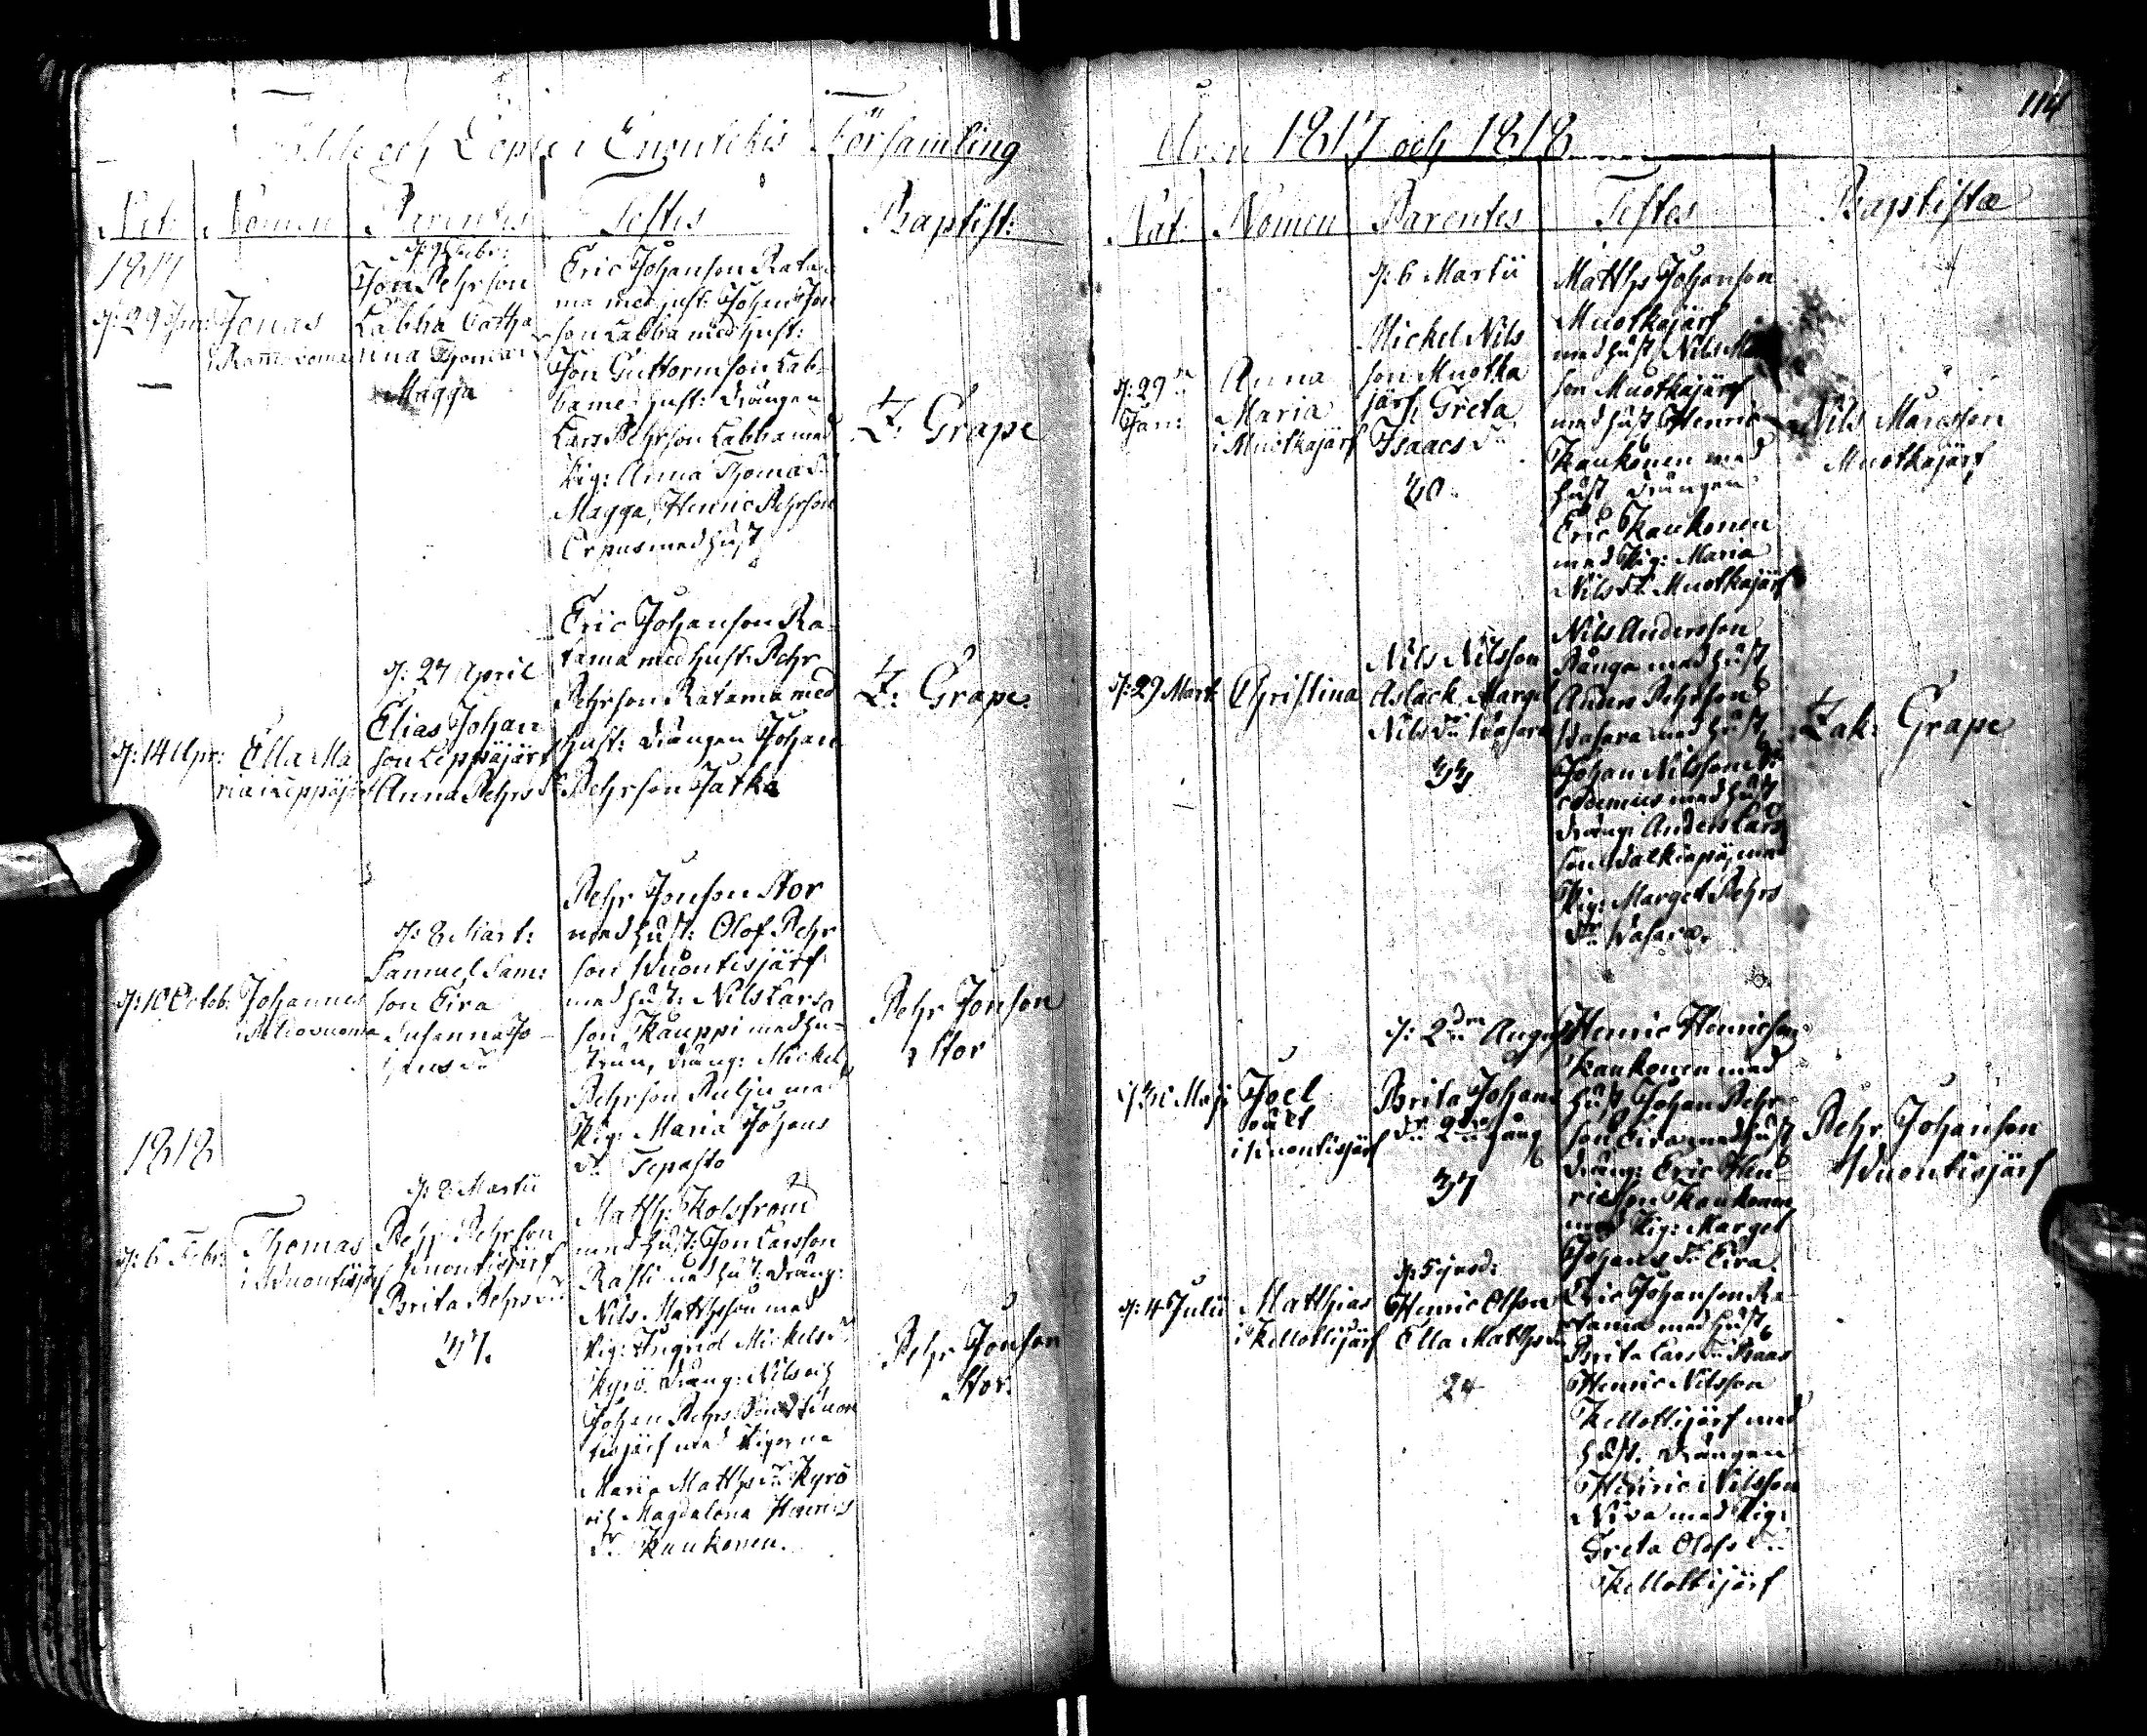 och Döpte i Enontekis Församling
Nat: Nomen Parentes Testes Baptist:
1817
d: 29 Jonas
Jon Pehrson
Labba Catha
rina Thomæ
Magga
Eric Johanson Rata
ma med hust: Johan Jon
son Labba med hust:
Jon Guttormson Lab-
ba med hust: drängen
Lars Pehrson Labba med
Pig: Anna Thomæ Dr
Magga, Henric Pehrson
Orpus med hust
Z. Grape
d: 14 Apr: Ella Ma
ria i Leppäjärf
d: 27 April
Elias Johan
son Leppäjärf
Anna Pehrs Dr
Eric Johanson Ra-
tama med hust: Pehr
Pehrson Ratama med
hust: drängen Johan
Pehrson Jatka
Z. Grape
d: 10 Octob: Johannes
d: 8 Mart:
Samuel Sam:
son Eira
Susanna Jo-
hans Dr
Pehr Jonson Stor
med hust: Olof Pehr
son Wuontisjärf
med hust: Nils Lars
son Kauppi med hu-
strun, dräng: Mickel
Pehrson Rulju med
Pig: Maria Johans
Dr Tepasto
Pehr Jonson
Stor
1818
d: 6 Febr: Thomas
i Wuontisjärf
d: 8 Martii
Pehr Pehrson
Wuontisjärf
Brita Pehrs Dr
37.
Matth: Kolström
med hust: Jon Larsson
Rasti med hust: dräng:
Nils Matthsson med
Pig: Ingrid Mickels Dr
Kyrö. dräng: Nils och
Johan Pehrs Söner Wuon
tisjärf med Pigorna
Maria Matths Dr Kyrö
och Magdalena Henrics
Dr Kaukonen.
Pehr Jonson
Stor.
114
Åren 1817 och 1818
Nat: Nomen Parentes Testes Baptistæ
d: 29
Jan:
Anna
Maria
i Muotkajärf
d: 6 Martii
Mickel Nils
son Muotka
järf, Greta
Isaacs Dr
30
Matths Johanson
Muotkajärf
med hust Nils
son Muotkajärf
med hust Henric
Kaukonen med
hust drängen
Eric Kaukonen
med Pig: Maria
Nils Dr Muotkajärf
Nils Marcsson
Muotkajärf
d: 29 Mart Christina
Nils Nilsson
Aslack Marget
Nils Dr Wasara
33
Nils Andersson
Pånga med hust
Anders Pehrson
Wasara med hust
Johan Nilsson
med hust
dräng: Anders Lars
son Walkiapä, med
Pig: Marget Pehrs
Dr Wasara.
Zak: Grape
d: 31 Maji Joel
oäkt
i Wuontisjärf
d: 2 Aug:
Brita Johans
Dr 2 gång
37
Henric Henricson
Kaukonen med
hust Johan Pehr
son Eira med hust
dräng: Eric Hen
ricsson Kaukonen
med Pig: Marget
Johans Dr Eira.
Pehr Johanson
Wuontisjärf
d: 4 Julii Matthias
i Kellottijärf
d: 5 ejusd:
Henric Olson
Ella Matths Dr
24
Eric Johanson Ra-
tama med hust,
Brita Lars Dr
Henric Nilsson
Kellottijärf med
hust. drängen
Henric Nilsson
Niva med Pig:
Greta Olofs Dr
Kellottijärf